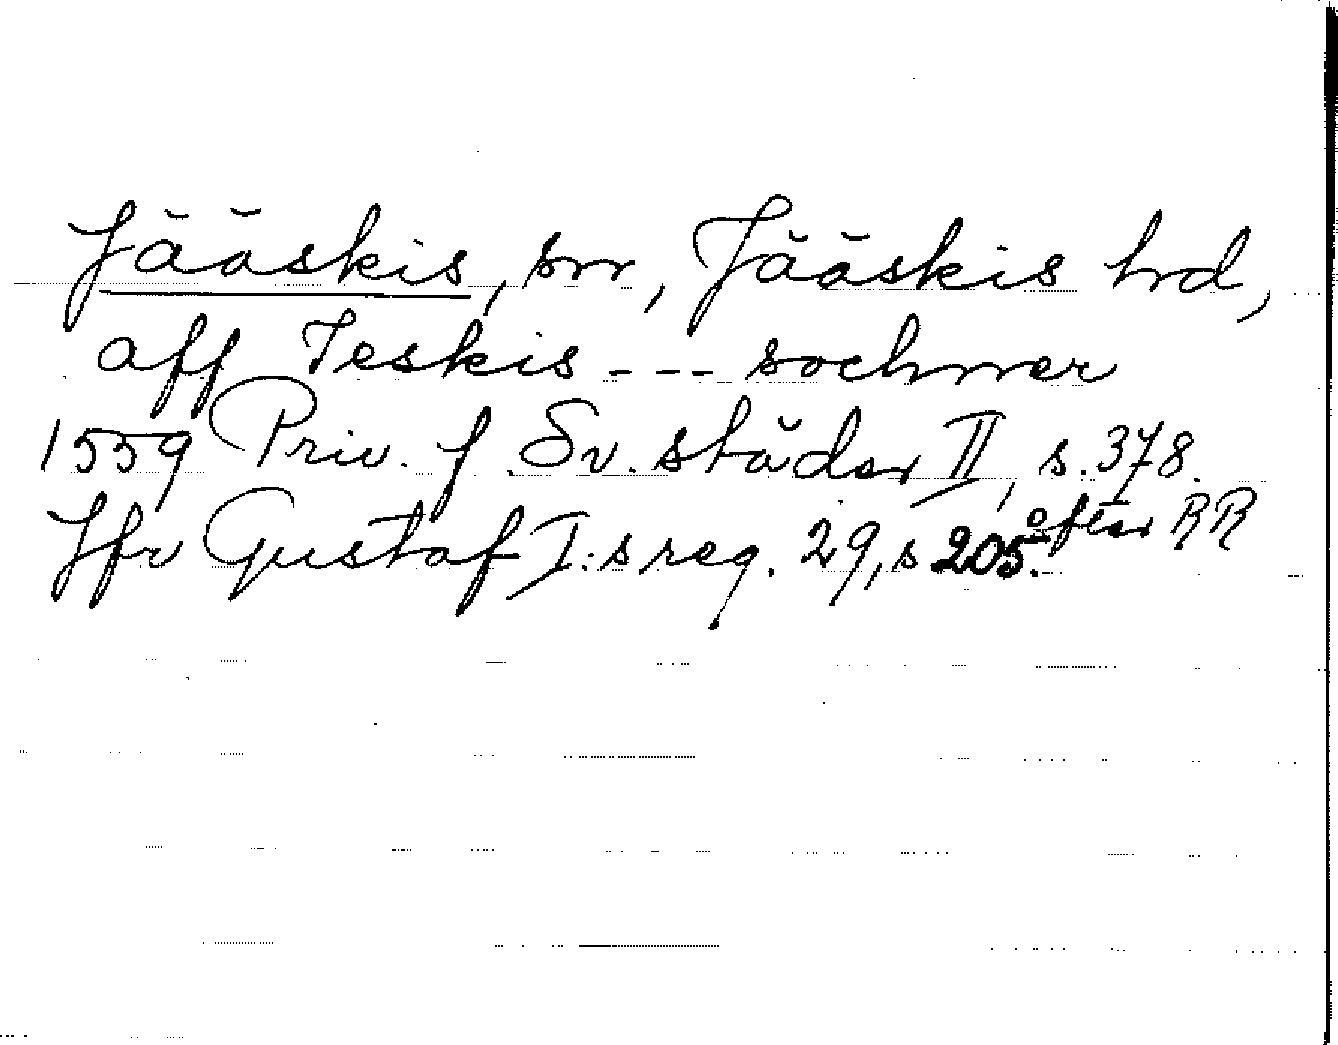 Jääskis, srr, Jääskis hrd,
aff Ieskis --- sochner
1559 Priv. f. Sv. städer II, s. 378.
Jfr Gustaf I:s reg. 29, s 205. efter RR